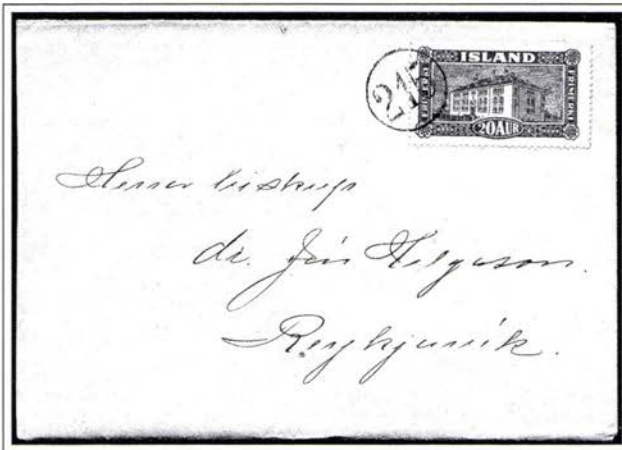 ISLAND
20 AUR
Herra biskup
dr. Jón Helgason.
Reykjavík.